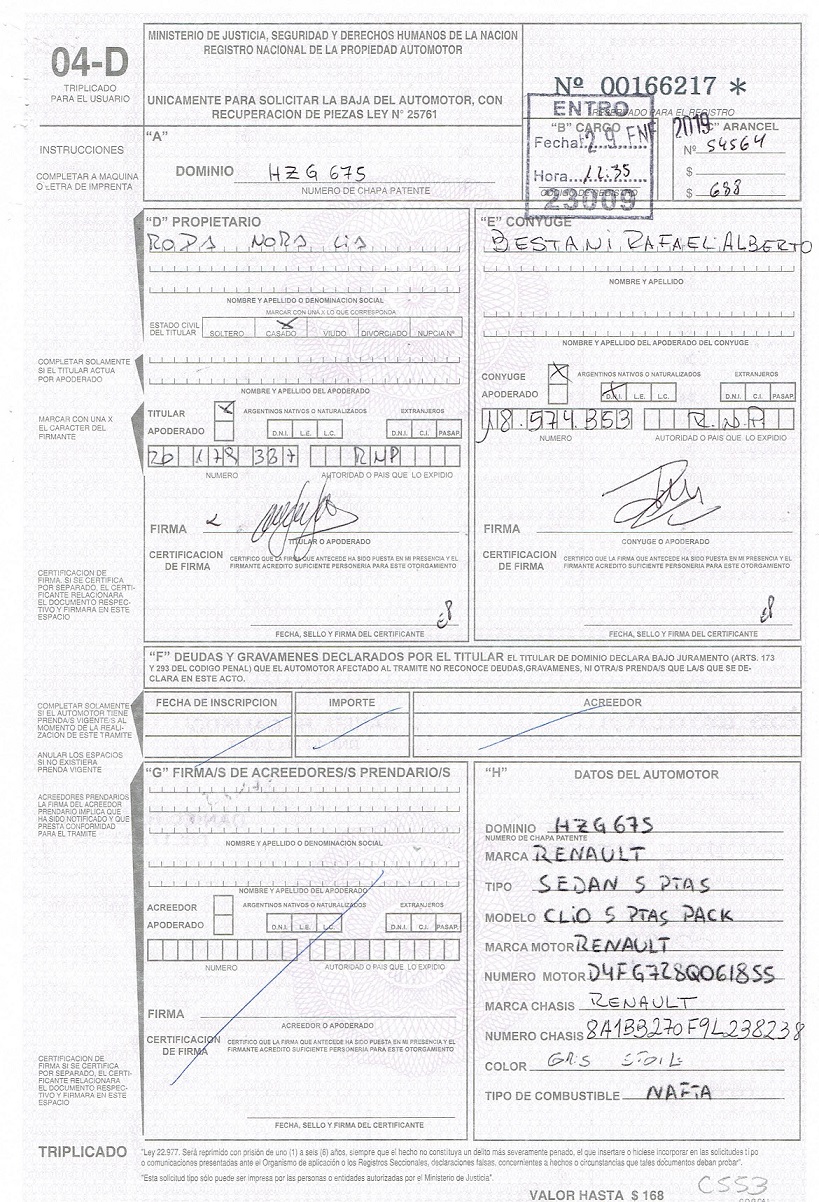 04-D
TRIPLICADO
PARA EL USUARIO
MINISTERIO DE JUSTICIA, SEGURIDAD Y DERECHOS HUMANOS DE LA NACION
REGISTRO NACIONAL DE LA PROPIEDAD AUTOMOTOR
UNICAMENTE PARA SOLICITAR LA BAJA DEL AUTOMOTOR, CON
RECUPERACION DE PIEZAS LEY N° 25761
Nº 00166217 *
RESERVADO PARA EL REGISTRO
ENTRO
Fecha: 29 ENE 2019
Hora 11.35
23009
"B" CARGO
CODIGO DE REGISTRO
"C" ARANCEL
Nº 54564
$
$ 688
INSTRUCCIONES
COMPLETAR A MAQUINA
O LETRA DE IMPRENTA
"A"
DOMINIO HZG 675
NUMERO DE CHAPA PATENTE
"D" PROPIETARIO
NORA
NOMBRE Y APELLIDO O DENOMINACION SOCIAL
MARCAR CON UNA X LO QUE CORRESPONDA
ESTADO CIVIL
DEL TITULAR
SOLTERO CASADO VIUDO DIVORCIADO NUPCIA Nº
X
COMPLETAR SOLAMENTE
SI EL TITULAR ACTUA
POR APODERADO
NOMBRE Y APELLIDO DEL APODERADO
MARCAR CON UNA X
EL CARACTER DEL
FIRMANTE
TITULAR X ARGENTINOS NATIVOS O NATURALIZADOS EXTRANJEROS
APODERADO D.N.I. L.E. L.C. D.N.I. C.I. PASAP.
RNP
NUMERO AUTORIDAD O PAIS QUE LO EXPIDIO
FIRMA
TITULAR O APODERADO
CERTIFICACION
DE FIRMA
CERTIFICO QUE LA FIRMA QUE ANTECEDE HA SIDO PUESTA EN MI PRESENCIA Y EL
FIRMANTE ACREDITO SUFICIENTE PERSONERIA PARA ESTE OTORGAMIENTO
CERTIFICACION DE
FIRMA. SI SE CERTIFICA
POR SEPARADO, EL CERTI-
FICANTE RELACIONARA
EL DOCUMENTO RESPEC-
TIVO Y FIRMARA EN ESTE
ESPACIO
FECHA, SELLO Y FIRMA DEL CERTIFICANTE
"E" CONYUGE
BESTANI RAFAEL ALBERTO
NOMBRE Y APELLIDO
NOMBRE Y APELLIDO DEL APODERADO DEL CONYUGE
CONYUGE X ARGENTINOS NATIVOS O NATURALIZADOS EXTRANJEROS
APODERADO D.N.I. L.E. L.C. D.N.I. C.I. PASAP.
18.574.353 R.N.P.
NUMERO AUTORIDAD O PAIS QUE LO EXPIDIO
FIRMA
CONYUGE O APODERADO
CERTIFICACION
DE FIRMA
CERTIFICO QUE LA FIRMA QUE ANTECEDE HA SIDO PUESTA EN MI PRESENCIA Y EL
FIRMANTE ACREDITO SUFICIENTE PERSONERIA PARA ESTE OTORGAMIENTO
FECHA, SELLO Y FIRMA DEL CERTIFICANTE
"F" DEUDAS Y GRAVAMENES DECLARADOS POR EL TITULAR EL TITULAR DE DOMINIO DECLARA BAJO JURAMENTO (ARTS. 173
Y 293 DEL CODIGO PENAL) QUE EL AUTOMOTOR AFECTADO AL TRAMITE NO RECONOCE DEUDAS,GRAVAMENES, NI OTRA/S PRENDA/S QUE LA/S QUE SE DE-
CLARA EN ESTE ACTO.
COMPLETAR SOLAMENTE
SI EL AUTOMOTOR TIENE
PRENDA/S VIGENTE/S AL
MOMENTO DE LA REALI-
ZACIÓN DE ESTE TRAMITE
ANULAR LOS ESPACIOS
SI NO EXISTIERA
PRENDA VIGENTE
FECHA DE INSCRIPCION IMPORTE ACREEDOR
ACREEDORES PRENDARIOS
LA FIRMA DEL ACREEDOR
PRENDARIO IMPLICA QUE
HA SIDO NOTIFICADO Y QUE
PRESTA CONFORMIDAD
PARA EL TRAMITE
"G" FIRMA/S DE ACREEDORES/S PRENDARIO/S
NOMBRE Y APELLIDO O DENOMINACION SOCIAL
NOMBRE Y APELLIDO DEL APODERADO
ACREEDOR ARGENTINOS NATIVOS O NATURALIZADOS EXTRANJEROS
APODERADO D.N.I. L.E. L.C. D.N.I. C.I. PASAP.
NUMERO AUTORIDAD O PAIS QUE LO EXPIDIO
FIRMA
ACREEDOR O APODERADO
CERTIFICACIÓN
DE FIRMA
CERTIFICO QUE LA FIRMA QUE ANTECEDE HA SIDO PUESTA EN MI PRESENCIA Y EL
FIRMANTE ACREDITO SUFICIENTE PERSONERIA PARA ESTE OTORGAMIENTO
CERTIFICACION DE
FIRMA SI SE CERTIFICA
POR SEPARADO, EL CERTI-
FICANTE RELACIONARA
EL DOCUMENTO RESPEC-
TIVO Y FIRMARA EN ESTE
ESPACIO
FECHA, SELLO Y FIRMA DEL CERTIFICANTE
"H" DATOS DEL AUTOMOTOR
DOMINIO HZG675
NUMERO DE CHAPA PATENTE
MARCA RENAULT
TIPO SEDAN 5 PTAS
MODELO CLIO 5 PTAS PACK
MARCA MOTOR RENAULT
NUMERO MOTOR D4FG728Q061855
MARCA CHASIS RENAULT
NUMERO CHASIS 8A1BB270F9L238238
COLOR GRIS
TIPO DE COMBUSTIBLE NAFTA
TRIPLICADO
"Ley 22.977. Será reprimido con prisión de uno (1) a seis (6) años, siempre que el hecho no constituya un delito más severamente penado, el que insertare o hiciese incorporar en las solicitudes tipo
o comunicaciones presentadas ante el Organismo de aplicación o los Registros Seccionales, declaraciones falsas, concernientes a hechos o circunstancias que tales documentos deban probar".
"Esta solicitud tipo sólo puede ser impresa por las personas o entidades autorizadas por el Ministerio de Justicia".
VALOR HASTA $ 168
C553